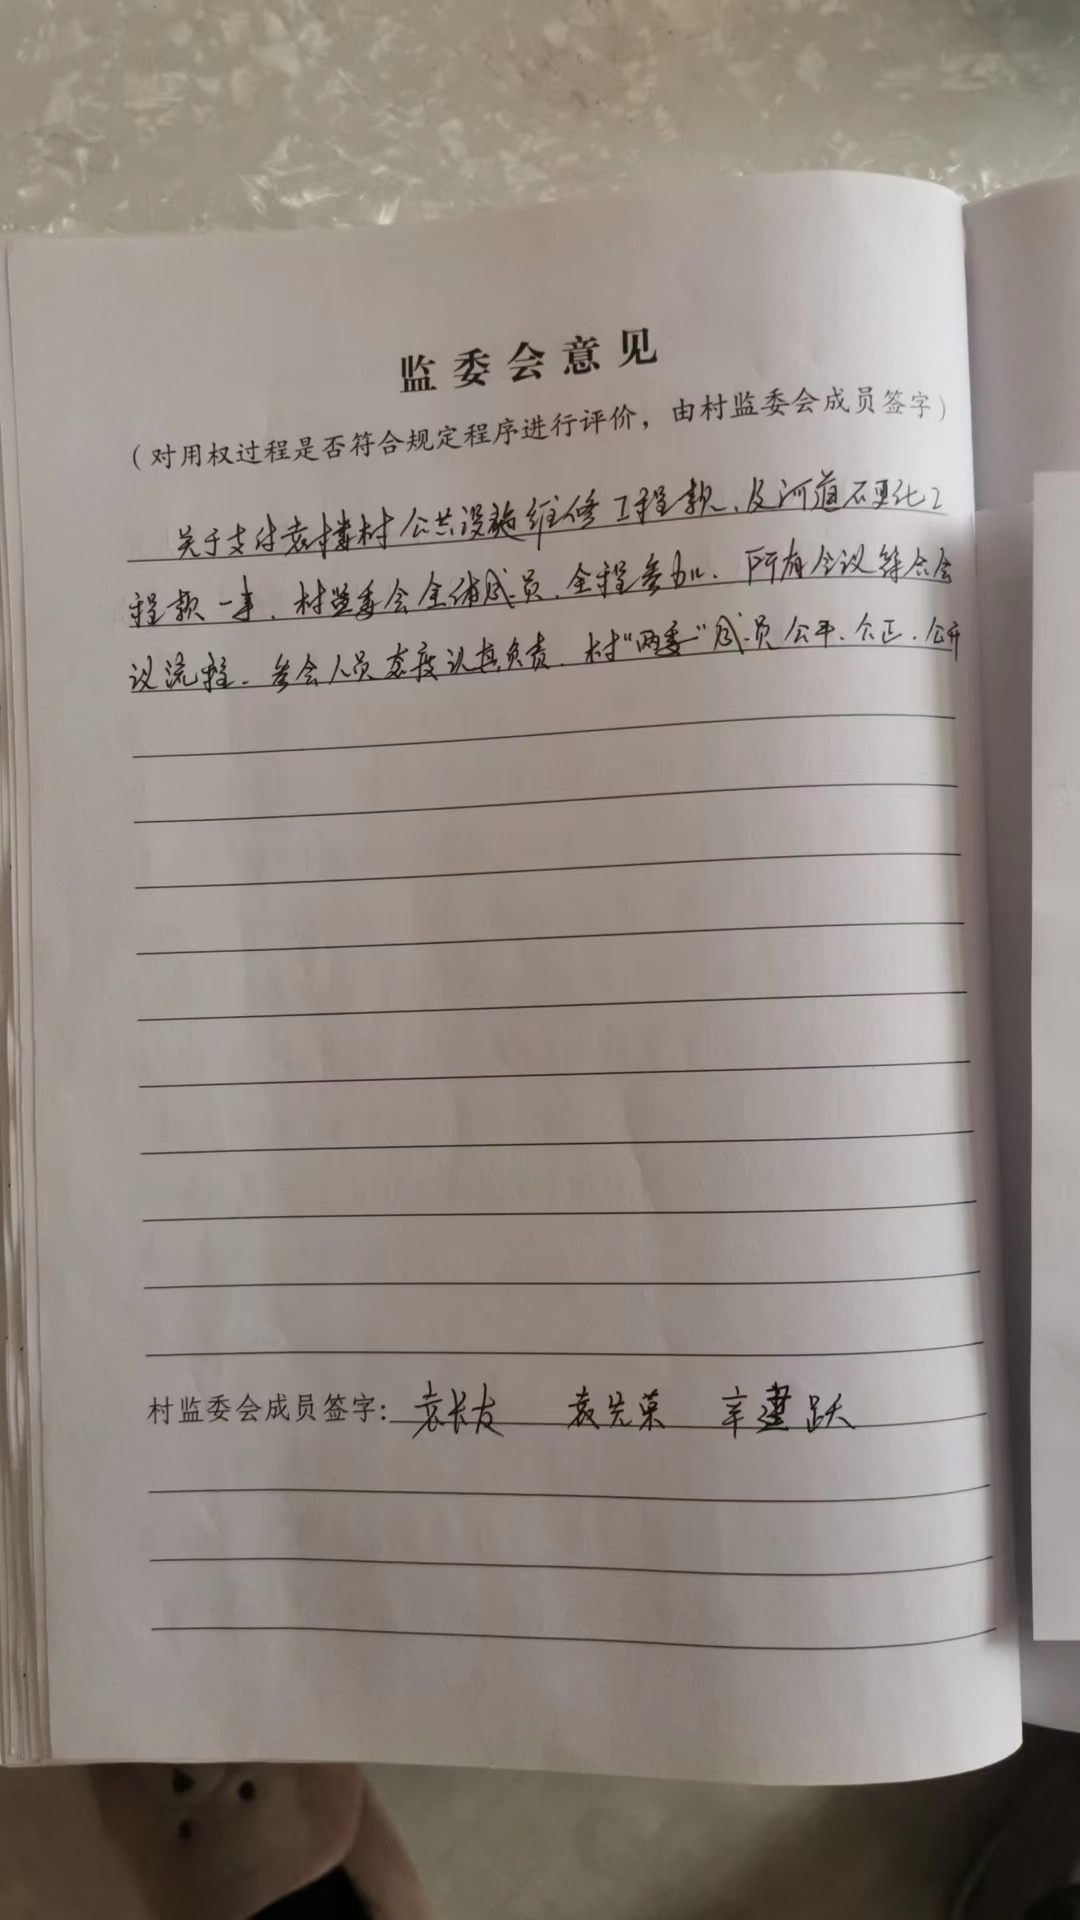 监委会意见
（对用权过程是否符合规定程序进行评价，由村监委会成员签字）
关于支付袁楼村公共设施维修工程款、及河道石更化工
程款一事、村监委会全体成员、全程参加、所有会议符合会
议流程、参会人员态度认真负责、村“两委”成员公平、公正、公开
村监委会成员签字：袁长友 袁先荣 辛建跃